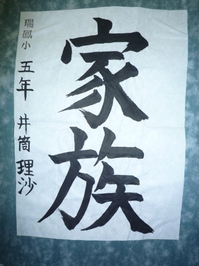 家族
瑞鳳小
五年 井筒理沙